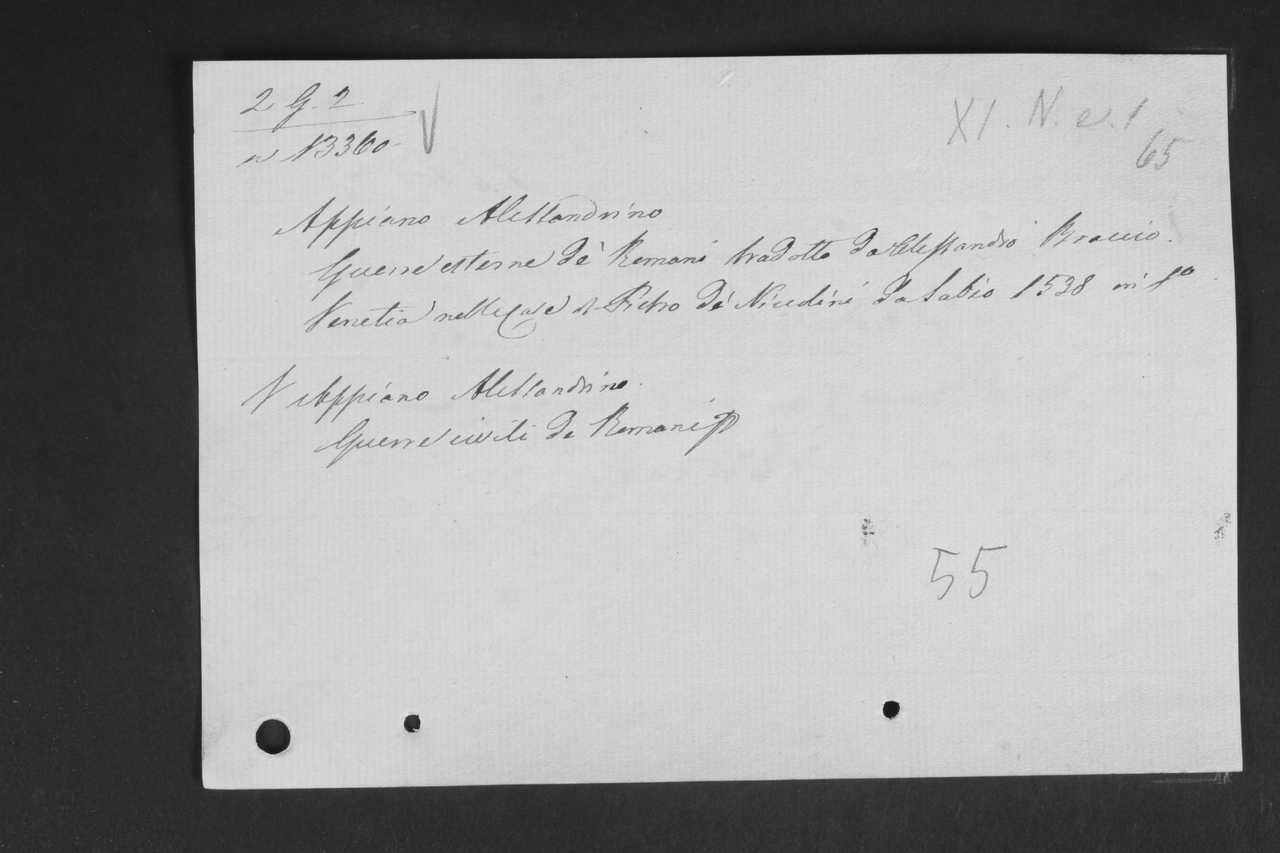 2 G. 2
N 3360
XI. N. e. 1
65
Appiano Alessandrino
Guerre esterne de' Romani tradotto da Alessandro Braccio.
Venetia nelle Case di Pietro de' Nicolini da Sabio 1538 in f.o
V Appiano Alessandrino.
Guerre civili de Romani
55